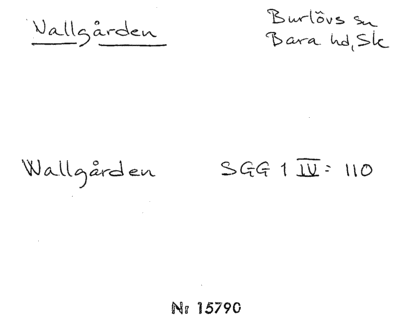 Vallgården
Burlövs sn
Bara hd, Sk
Wallgården SGG 1 IV: 110
Nr 15790